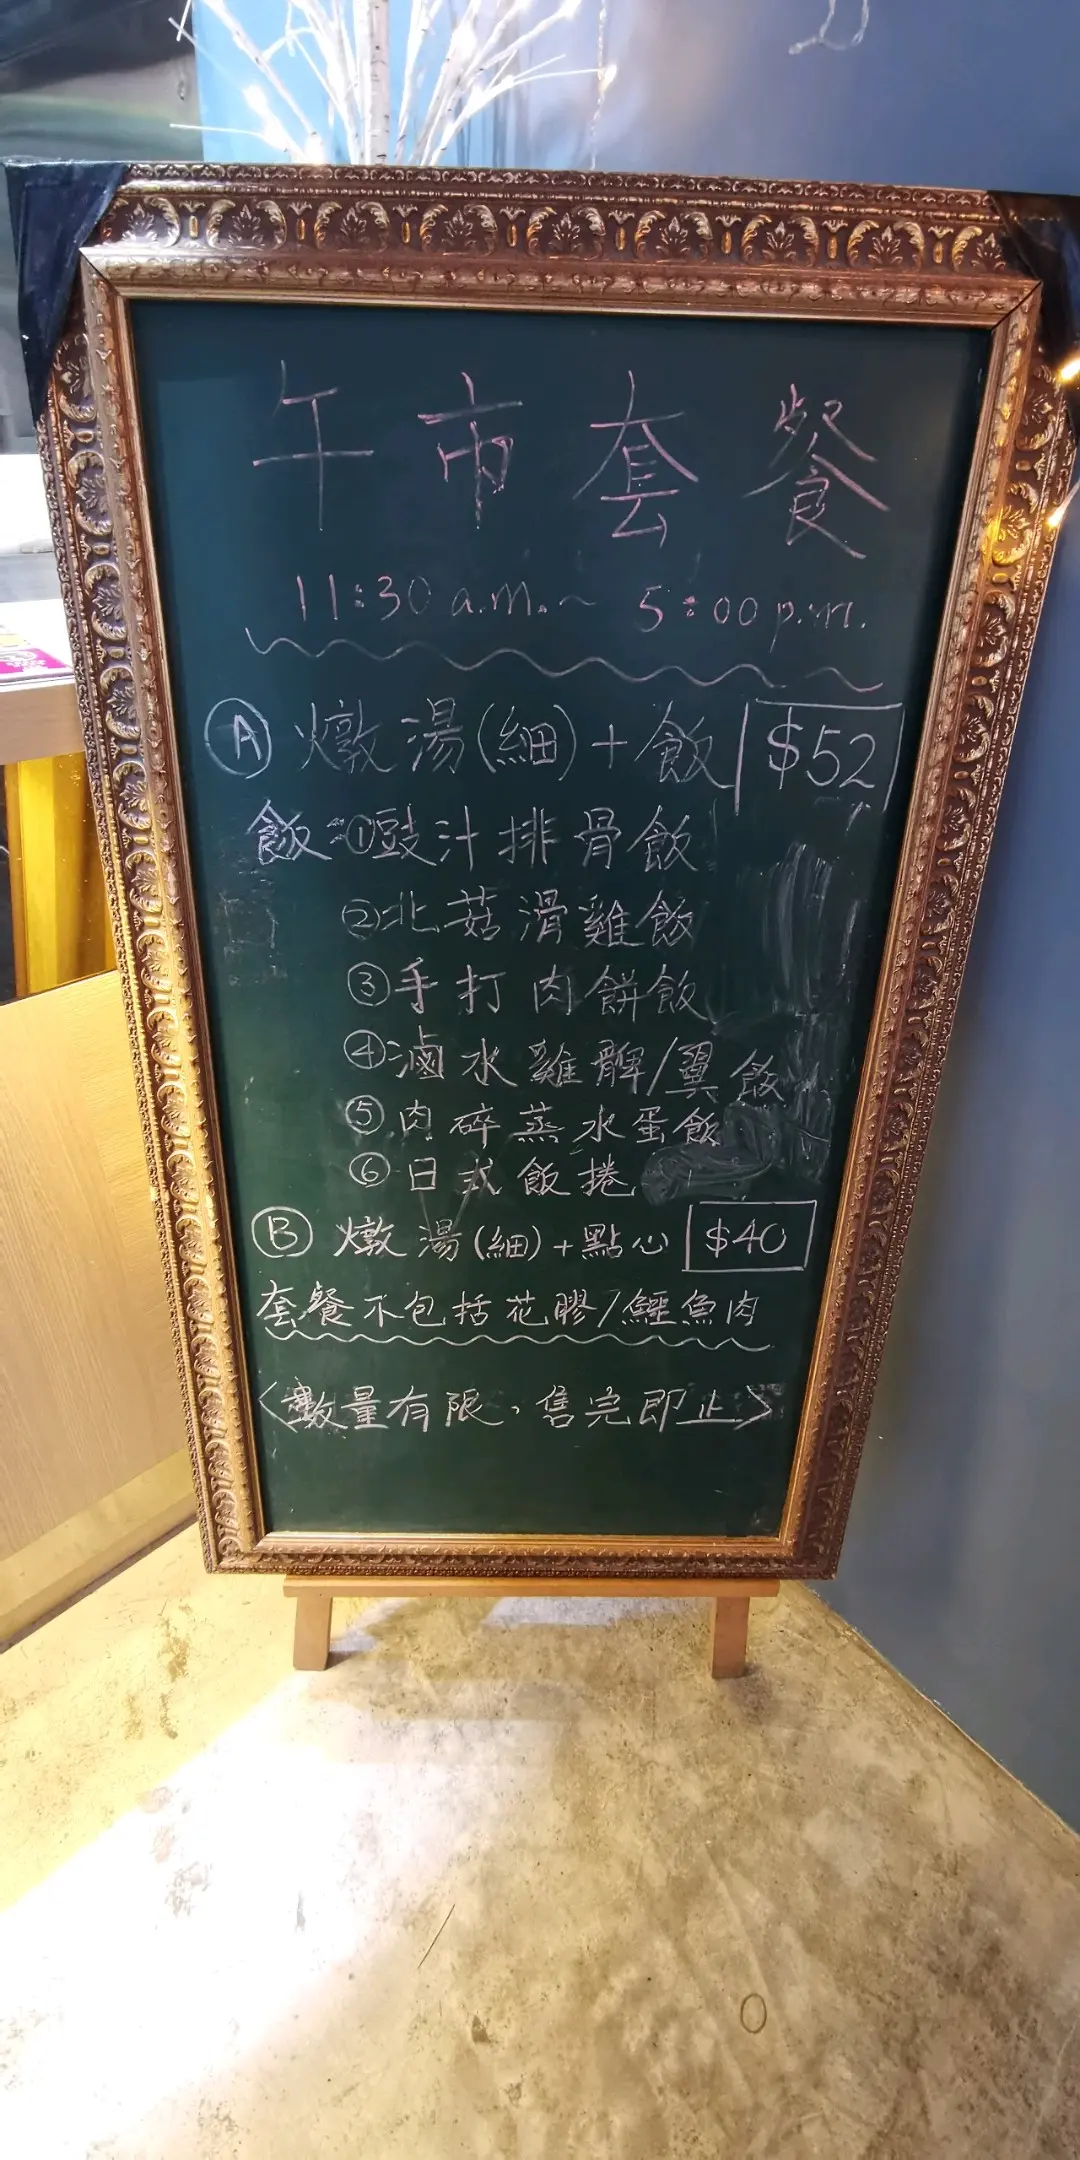 午市套餐
11:30 a.m. ~ 5:00 p.m.
Ⓐ 燉湯(細)+飯 $52
飯:①豉汁排骨飯
②北菇滑雞飯
③手打肉餅飯
④滷水雞髀/翼飯
⑤肉碎蒸水蛋飯
⑥日式飯捲
Ⓑ 燉湯(細)+點心 $40
套餐不包括花膠/鱷魚肉
〈數量有限,售完即止〉